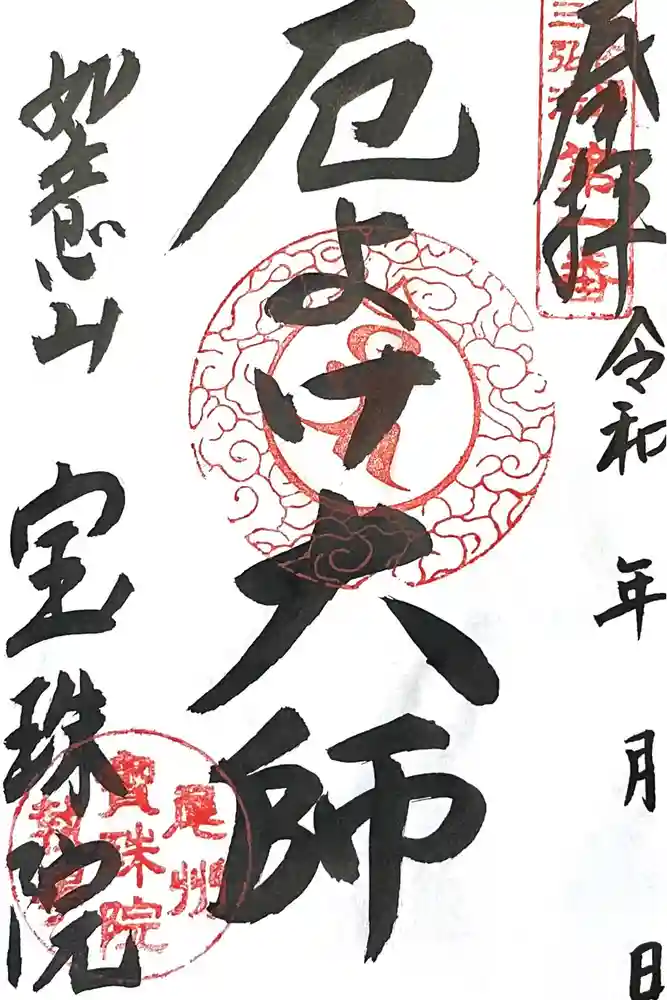 奉拝
令和 年 月 日
三弘法
第一番
厄よけ大師
如意山
宝珠院
尾州
寳珠院